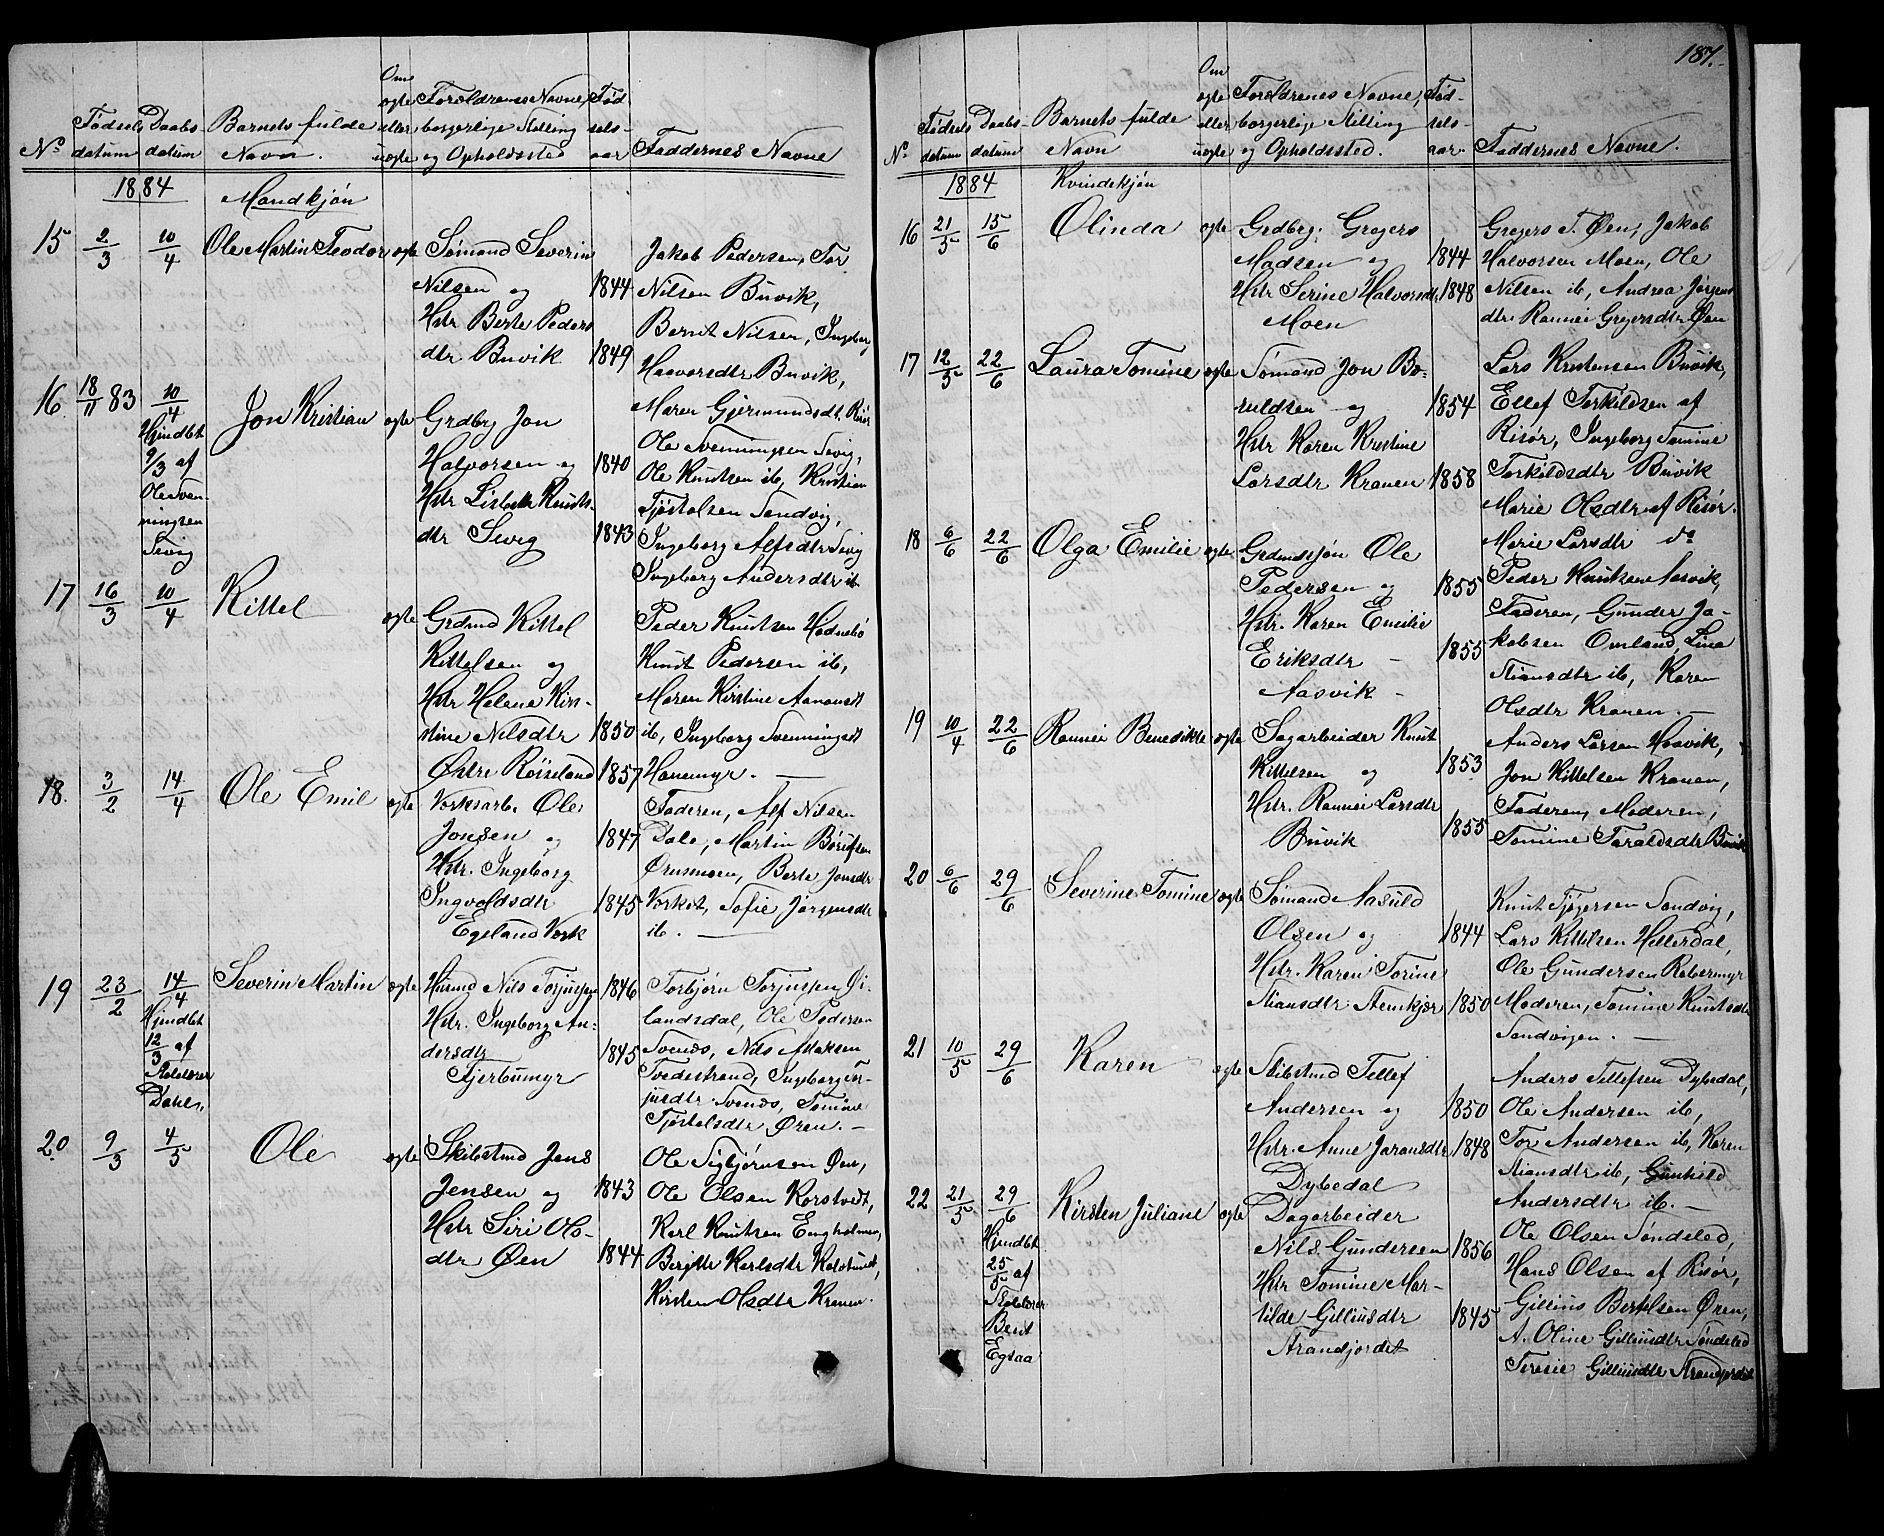 187.
No
Fødsels
datum
Daabs
datum
Barnets fulde
Navn.
Om
ægte
eller
uægte
Forældrenes Navne,
borgerlige Stilling
og Opholdssted
Fød
sels-
aar
Faddernes Navne
1884
Mandkjøn
15 2/3 10/4 Ole Martin Teodor ægte
Sømand Severin
Nilsen og 1844
Hstr Berte Peders
dtr Buvik 1849
Jakob Pedersen, Tor
Nilsen Buvik,
Bernt Nilsen, Ingeborg
Haavorsdtr Buvik,
Maren Gjermundsdt. Risør
16. 18/11 83 10/4 Jon Kristian ægte
Hjmdbt
9/3 af
Ole Sven
ningsen
Sevig
Grdbrg Jon
Halvorsen og 1840
Hstr Lisbeth Knuts-
dtr Sevig 1843
Ole Svenningsen Sevig,
Ole Knutsen ib, Kristian
Tjøstolsen Sandvig,
Ingeborg Alfsdtr Sevig
Ingeborg Andersdtr ib
17 16/3 10/4 Kittel ægte
Grdmd Kittel
Kittelsen og
Hstr Helene Kirs-
tine Nilsdtr 1850
Østre Røiseland 1857
Peder Knutsen Hødnebø
Knut Pedersen ib,
Maren Kirstine Aanonsdt
ib, Ingeborg Svenningsdt
Hanemyr. —
18. 3/2 14/4 Ole Emil ægte
Verksarb. Ole
Jonsen og 1847
Hstr. Ingeborg
Ingvoldsdtr 1845
Egeland Verk
Faderen, Alf Nilsen
Dale, Martin Børufsen
Ørnmoen, Berte Jonsdtr
Verket, Sofie Jørgensdtr
ib. —
19 23/2 14/4 Severin Martin ægte
Hjmdbt
12/3 af
Skolelærer
Dahl.
Husmd Nils Torjussen 1846
Hstr. Ingeborg An-
dersdtr 1845
Tjerbumyr
Torbjørn Torjussen Øi-
landsdal, Ole Pedersen
Svenes, Nils Maksen
Tvedestrand, Ingeborg Tor-
jusdtr Svenes, Tomine
Tjøstelsdtr Øren. —
20 9/3 4/5 Ole ægte
Skibstmd Jens
Jensen og 1843
Hstr Siri Ols-
dtr Øen 1844
Ole Sigbjørnsen Øen,
Ole Olsen Korstvedt,
Karl Knutsen Engholmen,
Birgitte Karlsdtr Kalstunet,
Kirsten Olsdtr Kranen.
No
Fødsels
datum
Daabs-
datum
Barnets fulde
Navn
Om
ægte
eller
uægte
Forældrenes Navne,
borgerlige Stilling
og Opholdssted.
Fød-
sels-
aar.
Faddernes Navne.
1884
Kvindekjøn
16 21/5 15/6 Olinda ægte
Grdbrg. Gregers
Madsen og 1844
Hstr Serine Halvorsdtr 1848
Moen
Gregers T. Øen, Jakob
Halvorsen Moen, Ole
Nilsen ib, Andrea Jørgens
dtr. Rannei Gregersdtr Øen
17 12/5 22/6 Laura Tomine ægte
Sømand Jon Bo-
ruldsen og 1854
Hstr Karen Kristine
Larsdtr Kranen 1858
Lars Kristensen Buvik,
Ellef Terkildsen af
Risør, Ingeborg Tomine
Terkildsdtr Buvik
Marie Olsdtr af Risør.
Marie Larsdtr do
18 6/6 22/6 Olga Emilie ægte
Grdmdsjøn Ole
Pedersen og 1855
Hstr. Karen Emilie
Eriksdtr — 1855
Aasvik —
Peder Knutsen Aasvik,
Faderen, Gunder Ja-
kobsen Omland, Lina
Stiansdtr ib, Karen
Olsdtr Kranen. —
19 10/4 22/6 Rannei Benedikte ægte
Sagarbeider Knut
Kittelsen og 1853
Hstr. Rannei Larsdtr
Buvik 1855
Anders Larsen Haavik,
Jon Kittelsen Kranen,
Faderen, Moderen,
Tomine Taraldsdtr Buvik
20 6/6 29/6 Severine Tomine ægte
Sømand Aasuld
Olsen og 1844
Hstr. Karen Torine
Stiansdtr Stemkjær 1850
Knut Tjøgersen Sandvig,
Lars Kittilsen Hellerdal,
Ole Gundersen Røbermyr
Moderen, Tomine Knutsdtr
Sandvigen. —
21 10/5 29/6 Karen ægte
Skibstmd Tellef
Andersen og 1850
Hstr. Anne Jaransdtr 1848
Dybedal
Anders Tellefsen Dybedal,
Ole Andersen ib,
Tor Andersen ib, Karen
Stiansdtr ib, Gunhild
Andersdtr ib. —
22 21/5 29/6 Kirsten Juliane ægte
Hjmdbt
25/5 af
Skolelærer
Bent
Egsaa
Dagarbeider
Nils Gundersen 1856
Hstr Tomine Mar-
tilde Gilliusdtr 1845
Strandjordet
Ole Olsen Søndeled,
Hans Olsen af Risør,
Gillius Bertelsen Øren,
A. Oline Gilliusdtr Søndeled
Terese Gilliusdtr Strandjordet